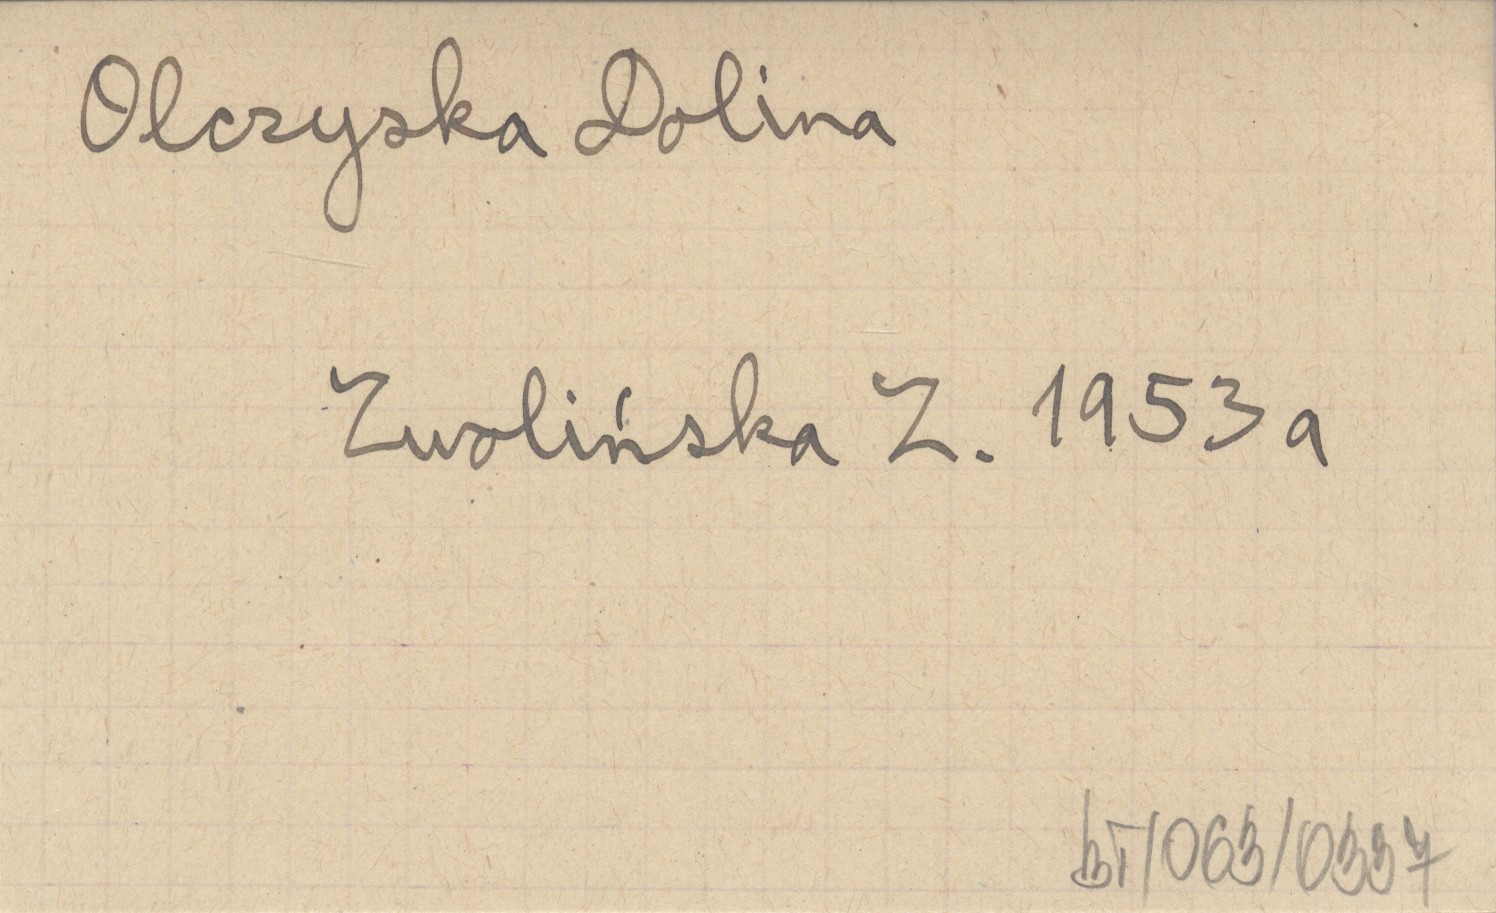 Olczyska Dolina
Zwolińska Z. 1953a
bT/063/0337